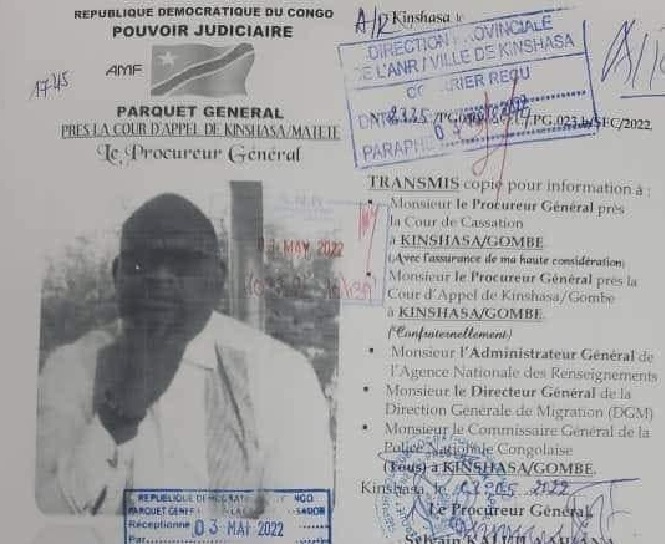 REPUBLIQUE DEMOCRATIQUE DU CONGO
POUVOIR JUDICIAIRE
AMF
17H5
PARQUET GENERAL
PRES LA COUR D'APPEL DE KINSHASA/MATETE
Le Procureur Général
03 MAY 2022
REPUBLIQUE
PARQUET
Réceptionné 03 MAI 2022
Par
A/R Kinshasa le
DIRECTION PROVINCIALE
DE L'ANR / VILLE DE KINSHASA
COURRIER REÇU
PARAPHE
/PG.023/ /SEC/2022
TRANSMIS copie pour information à :
• Monsieur le Procureur Général près
la Cour de Cassation
à KINSHASA/GOMBE
(Avec l'assurance de ma haute considération)
• Monsieur le Procureur Général près la
Cour d'Appel de Kinshasa/Gombe
à KINSHASA/GOMBE
("Confraternellement)
• Monsieur l'Administrateur Général de
l'Agence Nationale des Renseignements
• Monsieur le Directeur Général de la
Direction Générale de Migration (DGM)
• Monsieur le Commissaire Général de la
Police Nationale Congolaise
(Tous) à KINSHASA/GOMBE.
Kinshasa, le 05 2022
Le Procureur Général,
Sylvain